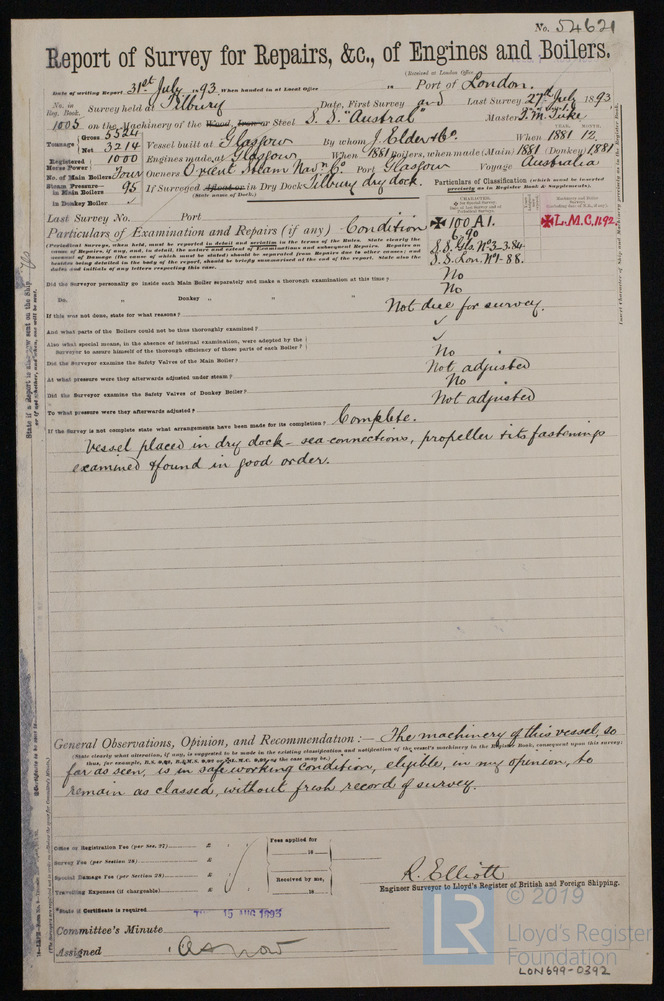 No. 54621
Report of Survey for Repairs, &c., of Engines and Boilers.
(Received at London Office
Date of writing Report 31st July 1893 When handed in at Local Office 18 Port of London.
No. in Reg. Book. Survey held at Tilbury Date, First Survey and Last Survey 27th July 1893
1005 on the Machinery of the Wood, Iron or Steel S. S. "Austral" Master
Tonnage Gross 5524 Net 3214 Vessel built at Glasgow By whom J. Elder & Co. When 1881 12
YEAR. MONTH.
Registered Horse Power 1000 Engines made at Glasgow When 1881 Boilers, when made (Main) 1881 (Donkey) 1881
No. of Main Boilers Four Owners Orient Steam Navn Co. Port Glasgow Voyage Australia
Steam Pressure in Main Boilers 95 If Surveyed Afloat or in Dry Dock Tilbury dry dock.
(State name of Dock.)
in Donkey Boiler ✓
Particulars of Classification (which must be inserted precisely as in Register Book & Supplements).
Last Survey No. Port
✠ 100 A1.
6,90
S.S. Gls. No. 3-3.84
S.S. Lon. No. 1-88.
✠ L.M.C. 11.92
Particulars of Examination and Repairs (if any) Condition
(Periodical Surveys, when held, must be reported in detail and seriatim in the terms of the Rules. State clearly the
cause of Repairs, if any, and, in detail, the nature and extent of Examinations and subsequent Repairs. Repairs on
account of Damage (the cause of which must be stated) should be separated from Repairs due to other causes; and
besides being detailed in the body of the report, should be briefly summarised at the end of the report. State also the
dates and initials of any letters respecting this case.
Did the Surveyor personally go inside each Main Boiler separately and make a thorough examination at this time? No
Do. " Donkey " " " No
If this was not done, state for what reasons? Not due for survey.
And what parts of the Boilers could not be thus thoroughly examined? ✓
Also what special means, in the absence of internal examination, were adopted by the
Surveyor to assure himself of the thorough efficiency of those parts of each Boiler? ✓
Did the Surveyor examine the Safety Valves of the Main Boiler? No
At what pressure were they afterwards adjusted under steam? Not adjusted
Did the Surveyor examine the Safety Valves of Donkey Boiler? No
To what pressure were they afterwards adjusted? Not adjusted
If the Survey is not complete state what arrangements have been made for its completion? Complete.
Vessel placed in dry dock - sea connections, propeller & its fastenings
examined & found in good order.
General Observations, Opinion, and Recommendation:— The machinery of this vessel, so
(State clearly what alteration, if any, is suggested to be made in the existing classification and notification of the vessel's machinery in the Register Book, consequent upon this survey;
far as seen, is in safe working condition, eligible, in my opinion, to
remain as classed, without fresh record of survey.
Office or Registration Fee (per Sec. 27) £
Survey Fee (per Section 28) £
Special Damage Fee (per Section 28) £
Travelling Expenses (if chargeable) £
Fees applied for
18
Received by me,
18
R. Elliott
Engineer Surveyor to Lloyd's Register of British and Foreign Shipping.
State if Certificate is required
15 AUG 1893
Committee's Minute
Assigned As now
© 2019
LR
Lloyd's Register
Foundation
LON699-0392